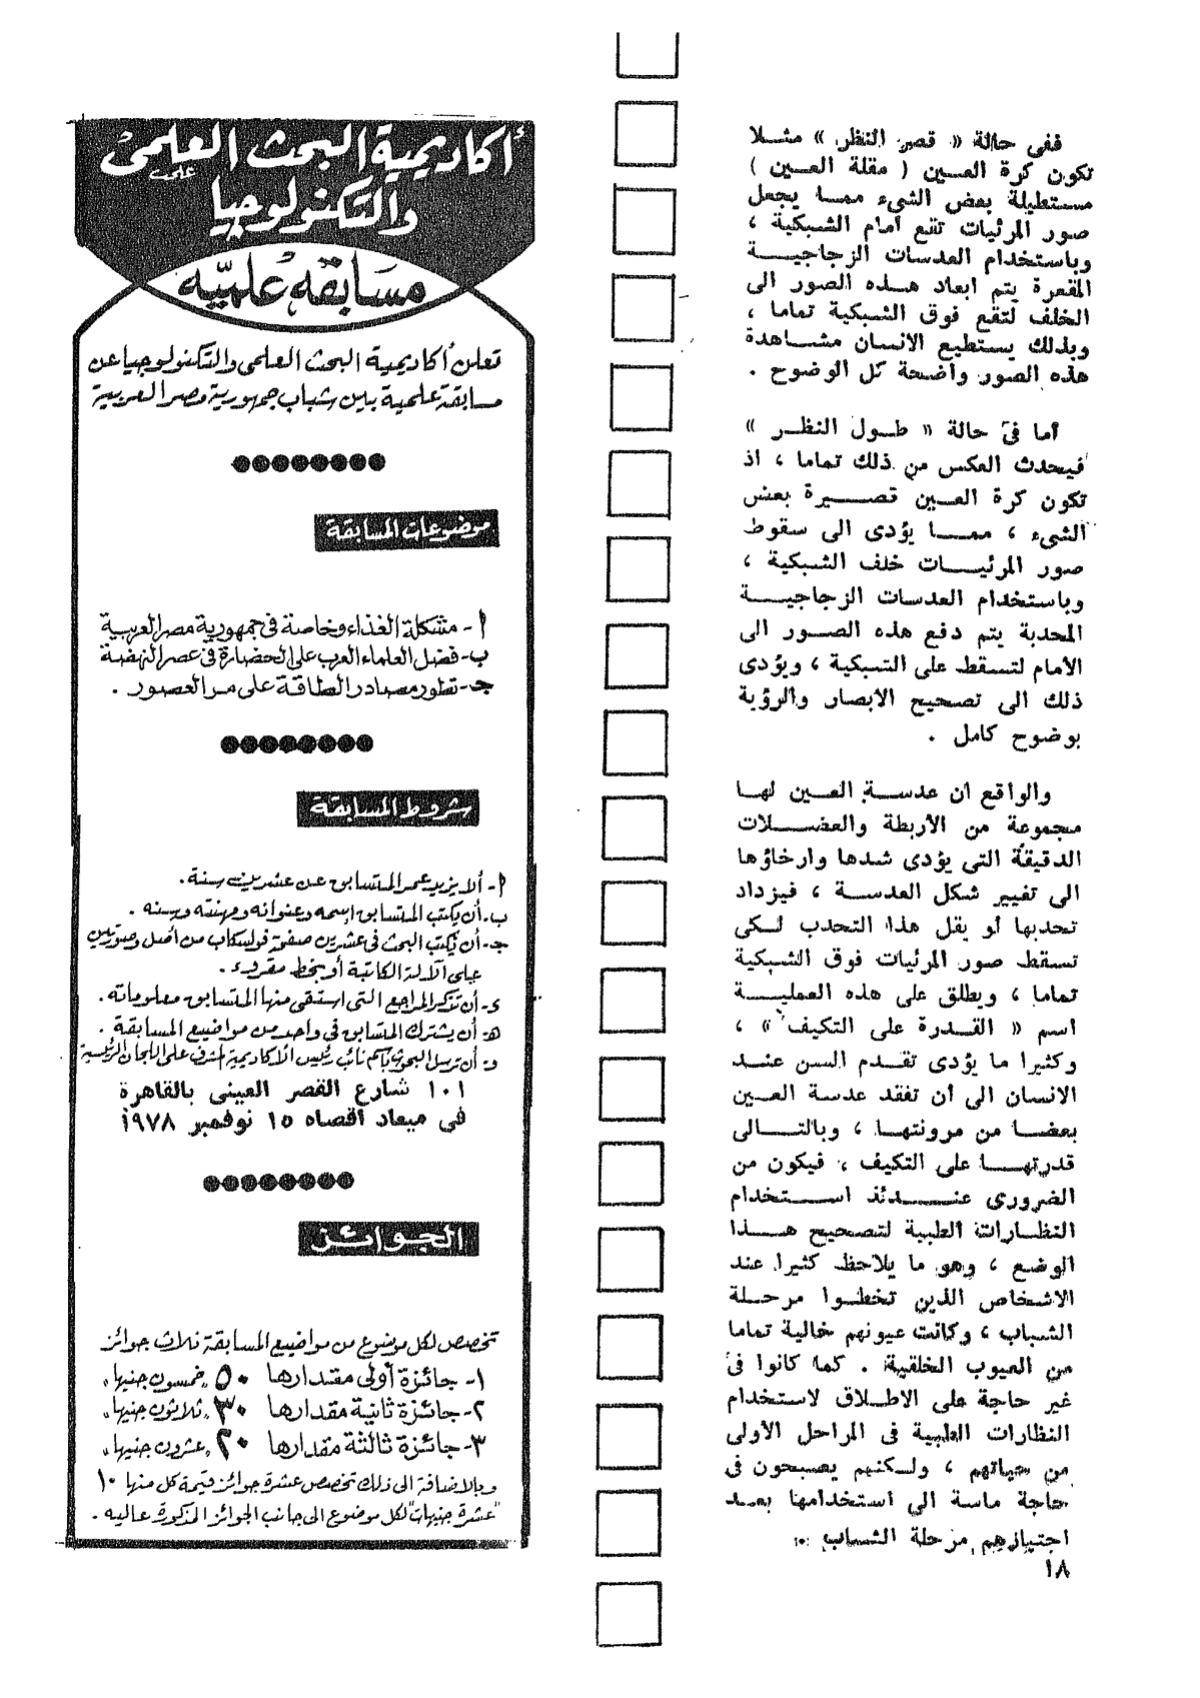 ففى حالة « قصر النظر » مثلا
تكون كرة العين ( مقلة العين )
مستطيلة بعض الشىء مما يجعل
صور المرئيات تقع أمام الشبكية ،
وباستخدام العدسات الزجاجية
المقعرة يتم ابعاد هذه الصور الى
الخلف لتقع فوق الشبكية تماما ،
وبذلك يستطيع الانسان مشاهدة
هذه الصور واضحة كل الوضوح .
أما فى حالة « طول النظر »
فيحدث العكس من ذلك تماما ، اذ
تكون كرة العين قصيرة بعض
الشىء ، مما يؤدى الى سقوط
صور المرئيات خلف الشبكية ،
وباستخدام العدسات الزجاجية
المحدبة يتم دفع هذه الصور الى
الأمام لتسقط على الشبكية ، ويؤدى
ذلك الى تصحيح الابصار والرؤية
بوضوح كامل .
والواقع ان عدسة العين لها
مجموعة من الأربطة والعضلات
الدقيقة التى يؤدى شدها وارخاؤها
الى تغيير شكل العدسة ، فيزداد
تحدبها أو يقل هذا التحدب لكى
تسقط صور المرئيات فوق الشبكية
تماما ، ويطلق على هذه العملية
اسم « القدرة على التكيف » ،
وكثيرا ما يؤدى تقدم السن عند
الانسان الى أن تفقد عدسة العين
بعضا من مرونتها ، وبالتالى
قدرتها على التكيف ، فيكون من
الضرورى عندئذ استخدام
النظارات الطبية لتصحيح هذا
الوضع ، وهو ما يلاحظ كثيرا عند
الاشخاص الذين تخطوا مرحلة
الشباب ، وكانت عيونهم خالية تماما
من العيوب الخلقية . كما كانوا فى
غير حاجة على الاطلاق لاستخدام
النظارات الطبية فى المراحل الأولى
من حياتهم ، ولكنهم يصبحون فى
حاجة ماسة الى استخدامها بعد
اجتيازهم مرحلة الشباب .
١٨
أكاديمية البحث العلمى
والتكنولوجيا
مسابقة علمية
تعلن أكاديمية البحث العلمى والتكنولوجيا عن
مسابقة علمية بين شباب جمهورية مصر العربية
موضوعات المسابقة
أ - مشكلة الغذاء وخاصة فى جمهورية مصر العربية
ب - فضل العلماء العرب على الحضارة فى عصر النهضة
جـ - تطور مصادر الطاقة على مر العصور .
شروط المسابقة
أ - ألا يزيد عمر المتسابق عن عشرين سنة .
ب - أن يكتب المتسابق اسمه وعنوانه ومهنته وسنه .
جـ - أن يكتب البحث فى عشرين صفحة فولسكاب من أصل وصورتين
على الآلة الكاتبة أو بخط مقروء .
د - أن تذكر المراجع التى استقى منها المتسابق معلوماته .
هـ - أن يشترك المتسابق فى واحد من مواضيع المسابقة .
و - أن ترسل البحوث باسم نائب رئيس الأكاديمية المشرف على اللجان الرئيسية
١٠١ شارع القصر العينى بالقاهرة
فى ميعاد أقصاه ١٥ نوفمبر ١٩٧٨
الجوائز
تخصص لكل موضوع من مواضيع المسابقة ثلاث جوائز
١ - جائزة أولى مقدارها ٥٠ « خمسون جنيها »
٢ - جائزة ثانية مقدارها ٣٠ « ثلاثون جنيها »
٣ - جائزة ثالثة مقدارها ٢٠ « عشرون جنيها »
وبالاضافة الى ذلك تخصص عشرة جوائز قيمة كل منها ١٠
"عشرة جنيهات" لكل موضوع الى جانب الجوائز المذكورة عاليه .